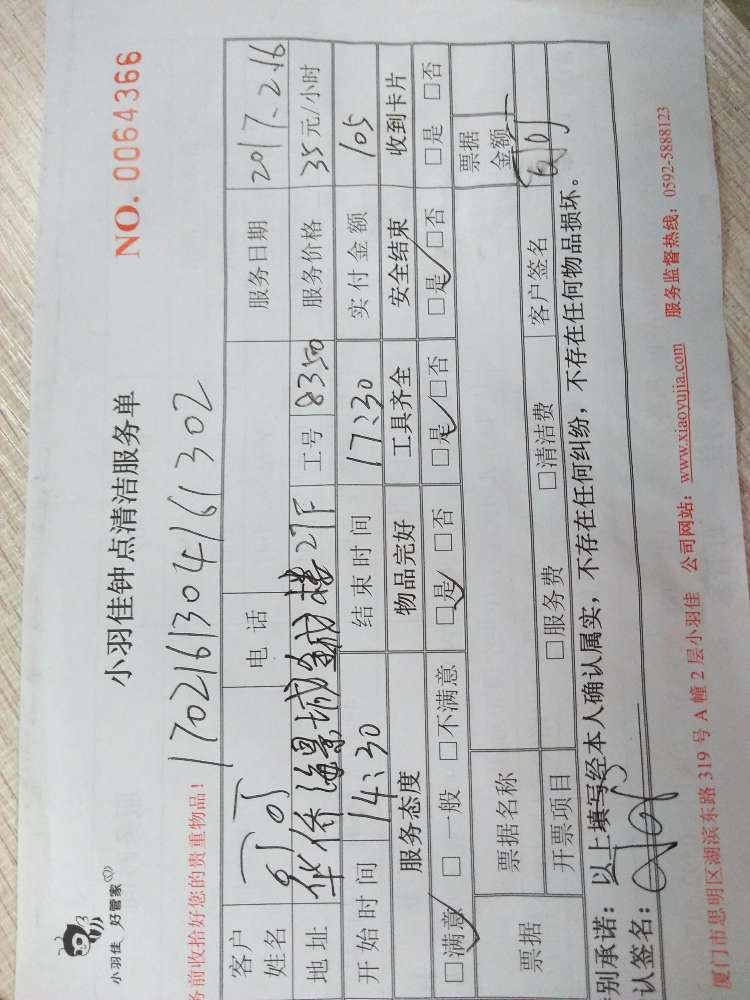 小羽佳 好管家
小羽佳钟点清洁服务单
NO. 0064366
170216130416 1302
务前收拾好您的贵重物品!
客户姓名 电话 服务日期 2017.2.16
地址 华侨海景城 楼27F 工号 8350 服务价格 35元/小时
开始时间 14:30 结束时间 17:30 实付金额 105
服务态度 物品完好 工具齐全 安全结束 收到卡片
□满意 □一般 □不满意 □是 □否 □是 □否 □是 □否 □是 □否
票据 票据名称 票据金额
开票项目 □服务费 □清洁费 客户签名
别承诺:以上填写经本人确认属实,不存在任何纠纷,不存在任何物品损坏。
认签名:
厦门市思明区湖滨东路319号A幢2层小羽佳 公司网站:www.xiaoyujia.com 服务监督热线:0592-5888123